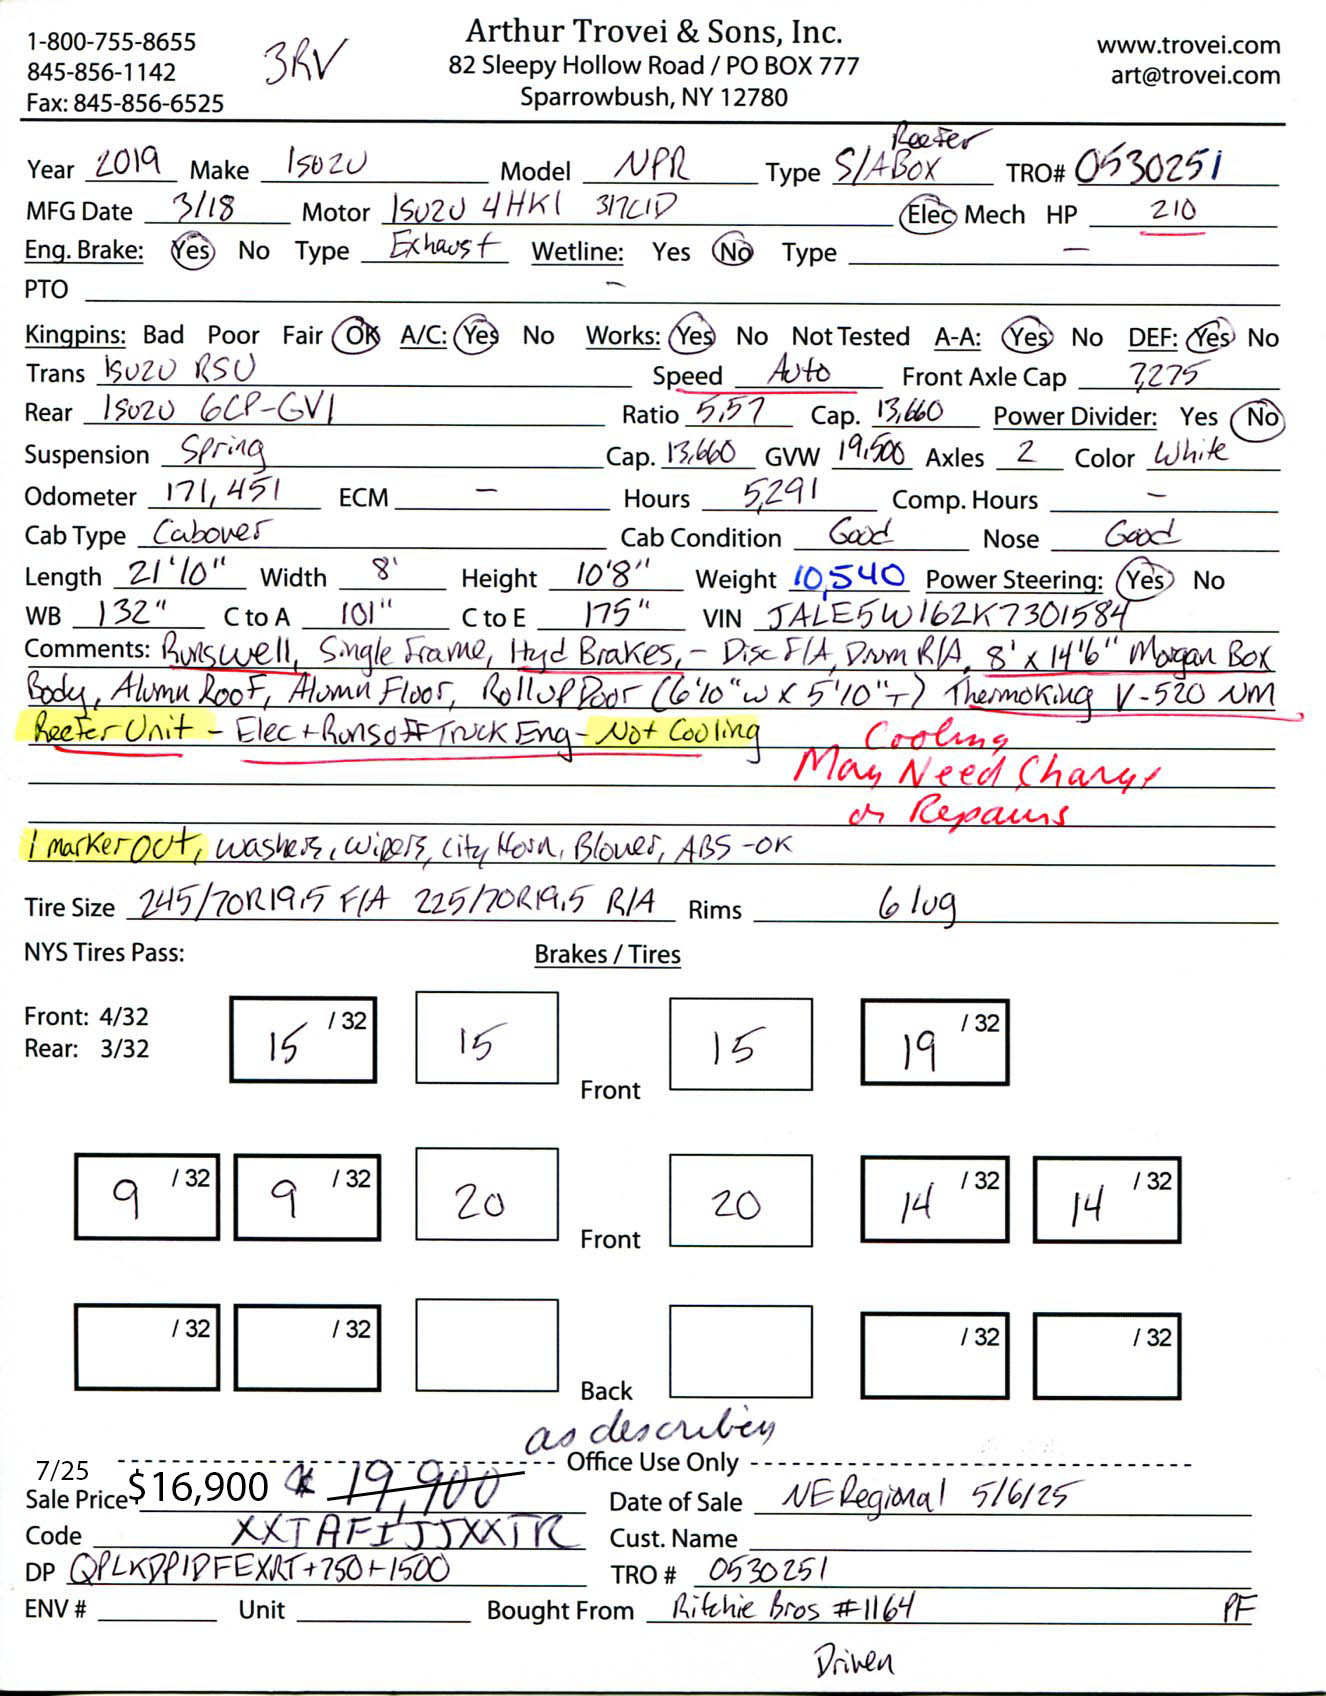 1-800-755-8655
845-856-1142
Fax: 845-856-6525
3RV
Arthur Trovei & Sons, Inc.
82 Sleepy Hollow Road / PO BOX 777
Sparrowbush, NY 12780
www.trovei.com
art@trovei.com
Year 2019 Make ISUZU Model NPR Type S/A BOX Reefer TRO# 0530251
MFG Date 3/18 Motor ISUZU 4HK1 317CID Elec Mech HP 210
Eng. Brake: Yes No Type Exhaust Wetline: Yes No Type -
PTO -
Kingpins: Bad Poor Fair OK A/C: Yes No Works: Yes No Not Tested A-A: Yes No DEF: Yes No
Trans ISUZU RSU Speed Auto Front Axle Cap 7,275
Rear ISUZU 6CP-GV1 Ratio 5.57 Cap. 13,660 Power Divider: Yes No
Suspension Spring Cap. 13,660 GVW 19,500 Axles 2 Color White
Odometer 171,451 ECM - Hours 5,291 Comp. Hours -
Cab Type Cabover Cab Condition Good Nose Good
Length 21'10" Width 8' Height 10'8" Weight 10,540 Power Steering: Yes No
WB 132" C to A 101" C to E 175" VIN JALE5W162K7301584
Comments: Runs well, Single Frame, Hyd Brakes, - Disc F/A, Drum R/A, 8' x 14'6" Morgan Box
Body, Alumn Roof, Alumn Floor, Roll up Door (6'10" W x 5'10" T) Thermoking V-520 NM
Reefer Unit - Elec + Runs off Truck Eng - Not Cooling
Cooling
May Need Charge
or Repairs
1 marker out, washers, wipers, city Horn, Blower, ABS - OK
Tire Size 245/70R19.5 F/A 225/70R19.5 R/A Rims 6 lug
NYS Tires Pass:
Brakes / Tires
Front: 4/32
Rear: 3/32
15 /32 15 15 19 /32
Front
9 /32 9 /32 20 20 14 /32 14 /32
Front
/32 /32 /32 /32
Back
as describes
Office Use Only
7/25
Sale Price $16,900 19,900
Date of Sale NE Regional 5/6/25
Code XXTAFIJJXXTR
Cust. Name
DP QPLKDPIDFEXRT+750+1500
TRO # 0530251
ENV # Unit Bought From Ritchie Bros #1164 PF
Driven